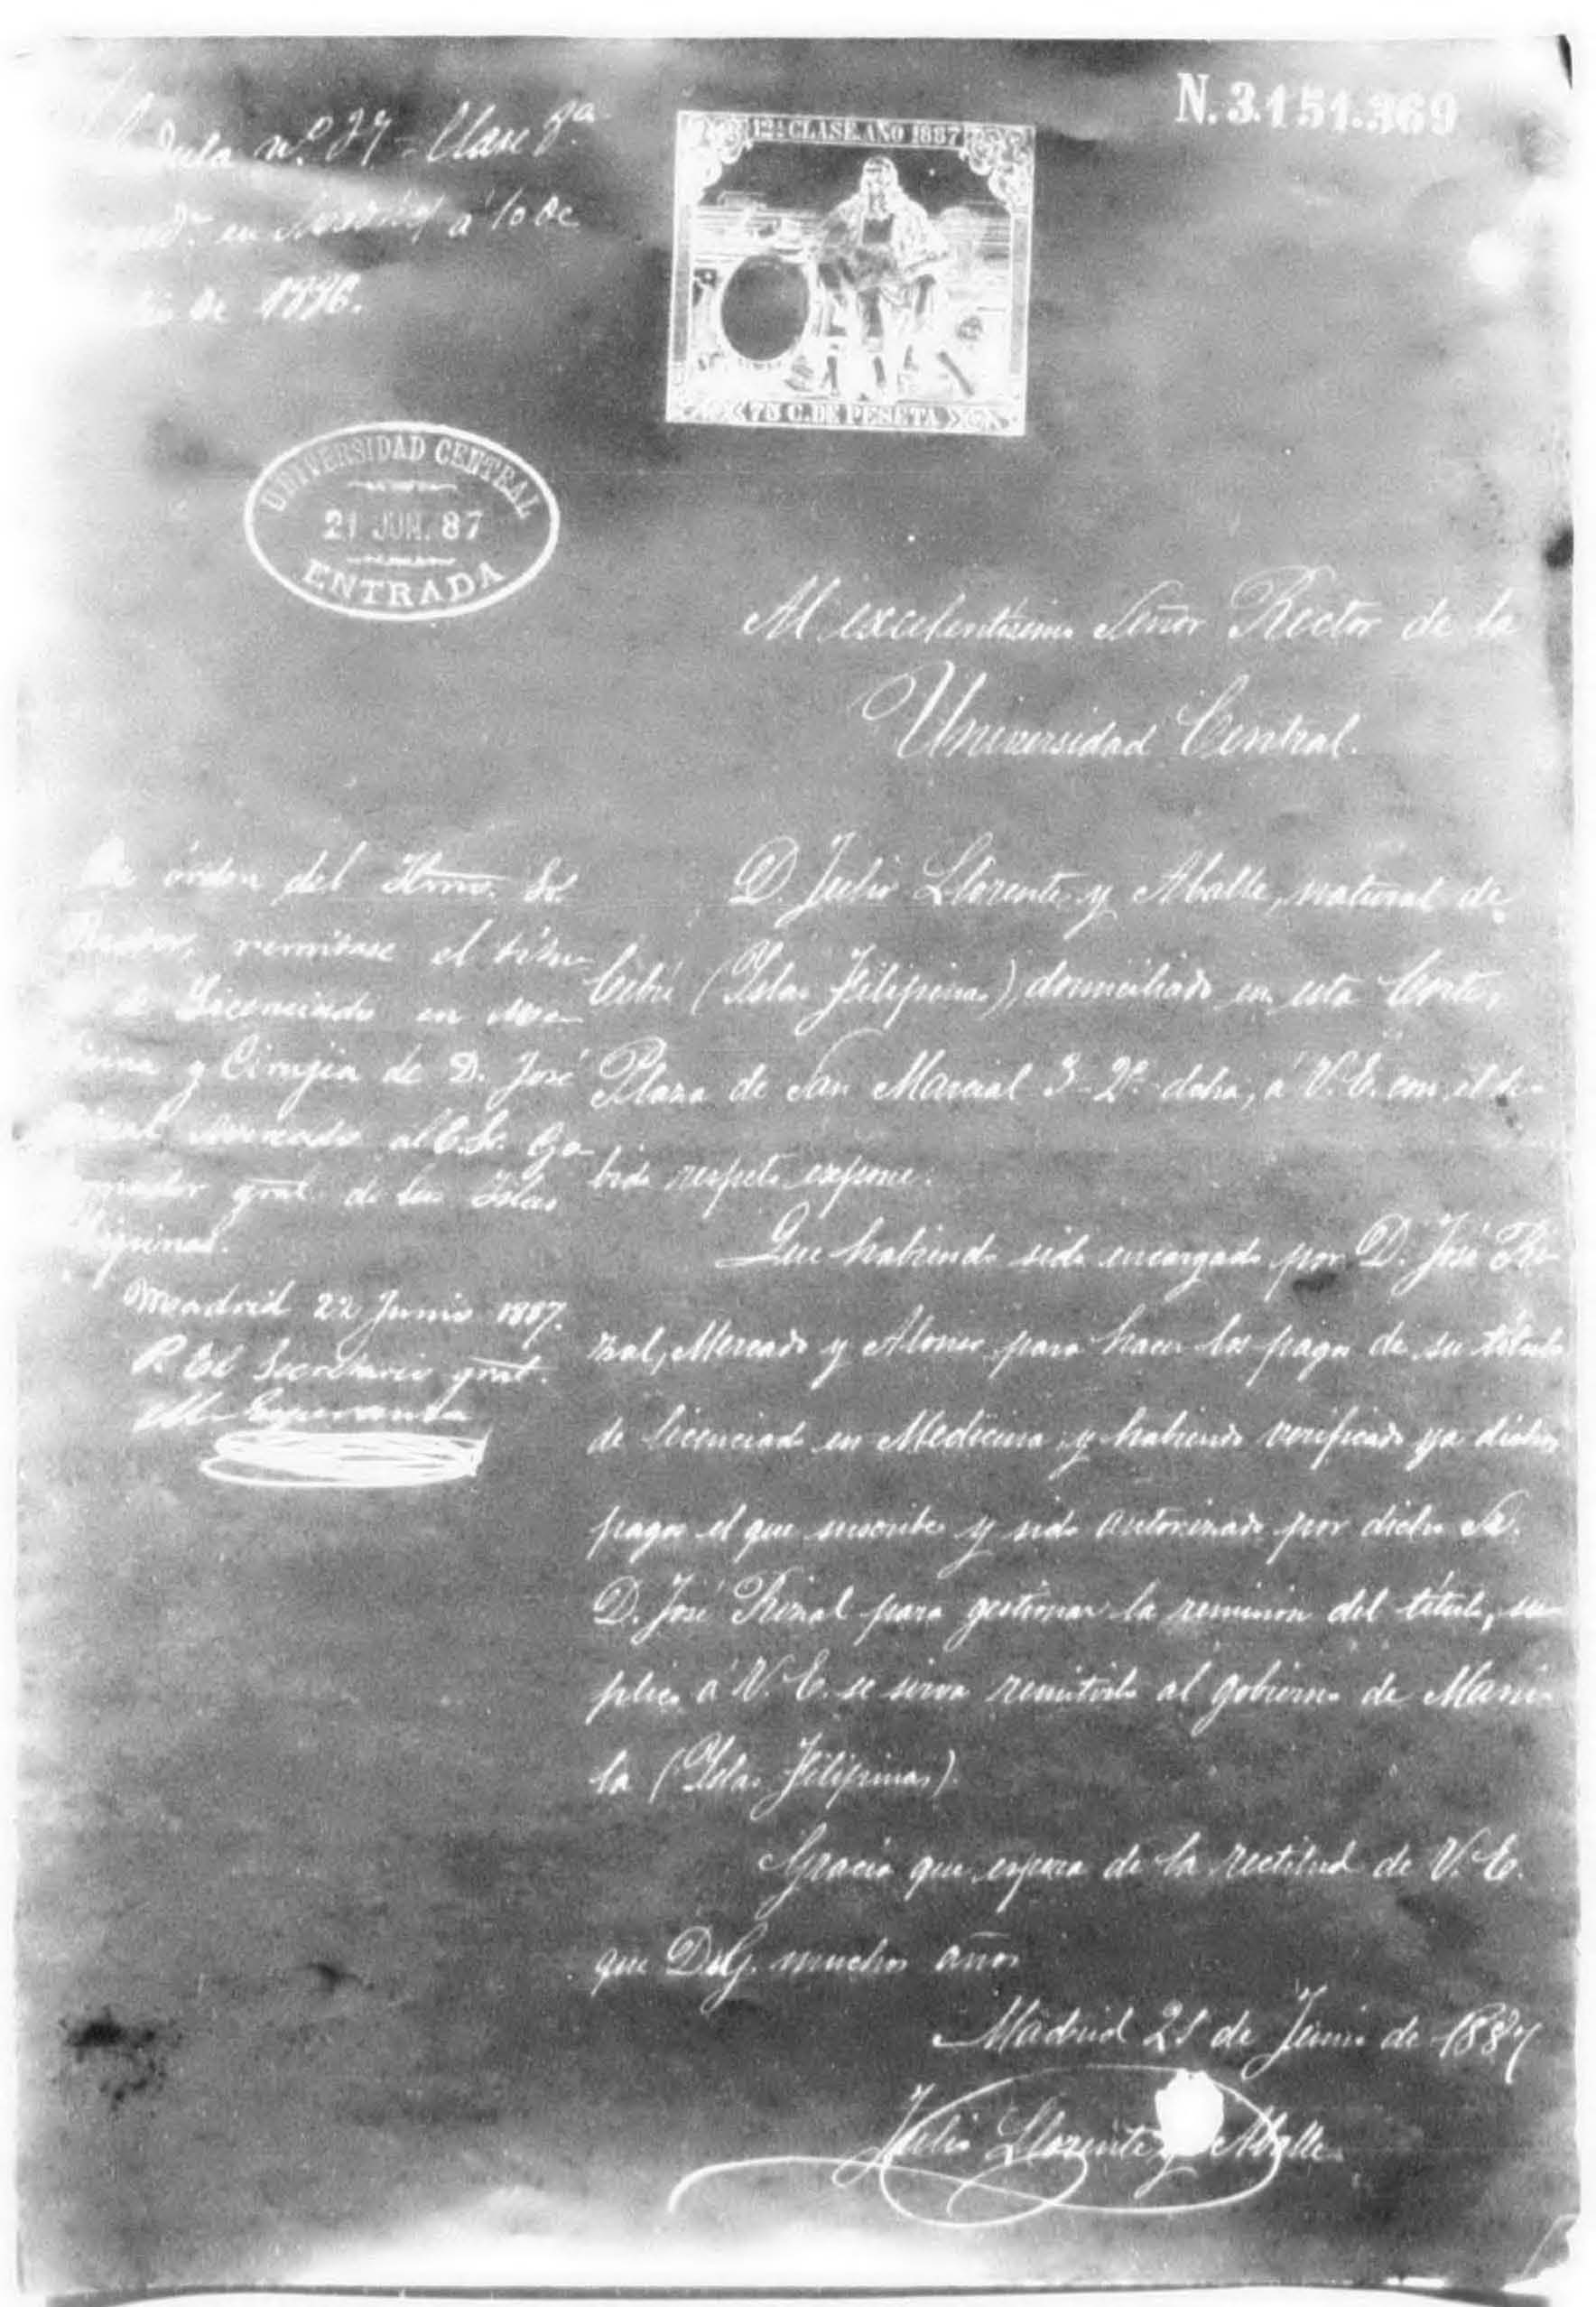 N. 3.151.369
12ª CLASE. AÑO 1887
75 C. DE PESETA
nº 37 - Clase 8ª
en á 10 de
de 1886.
UNIVERSIDAD CENTRAL
21 JUN. 87
ENTRADA
Al excelentísimo Señor Rector de la
Universidad Central.
D. Julio Llorente y Aballe, natural de
Cebú (Islas Filipinas), domiciliado en esta Corte,
Plaza de San Marcial 3-2º dcha, á V. E. con el de-
bido respeto expone:
Que habiendo sido encargado por D. José Ri-
zal, Mercado y Alonso para hacer los pagos de su título
de licenciado en Medicina, y habiendo verificado ya dichos
pagos el que suscribe y sido autorizado por dicho Sr.
D. José Rizal para gestionar la remision del título, su-
plica á V. E. se sirva remitirlo al gobierno de Mani-
la (Islas Filipinas).
Gracia que espera de la rectitud de V. E.
que D. g. muchos años
Madrid 21 de Junio de 1887
Julio Llorente y Aballe
De órden del Ilmo. Sr.
Rector, remítase el títu-
lo de Licenciado en Me-
dicina y Cirujía de D. José
Rizal Mercado al E. Sr. Go-
bernador gral. de las Islas
Filipinas.
Madrid 22 Junio 1887.
El Secretario gral.